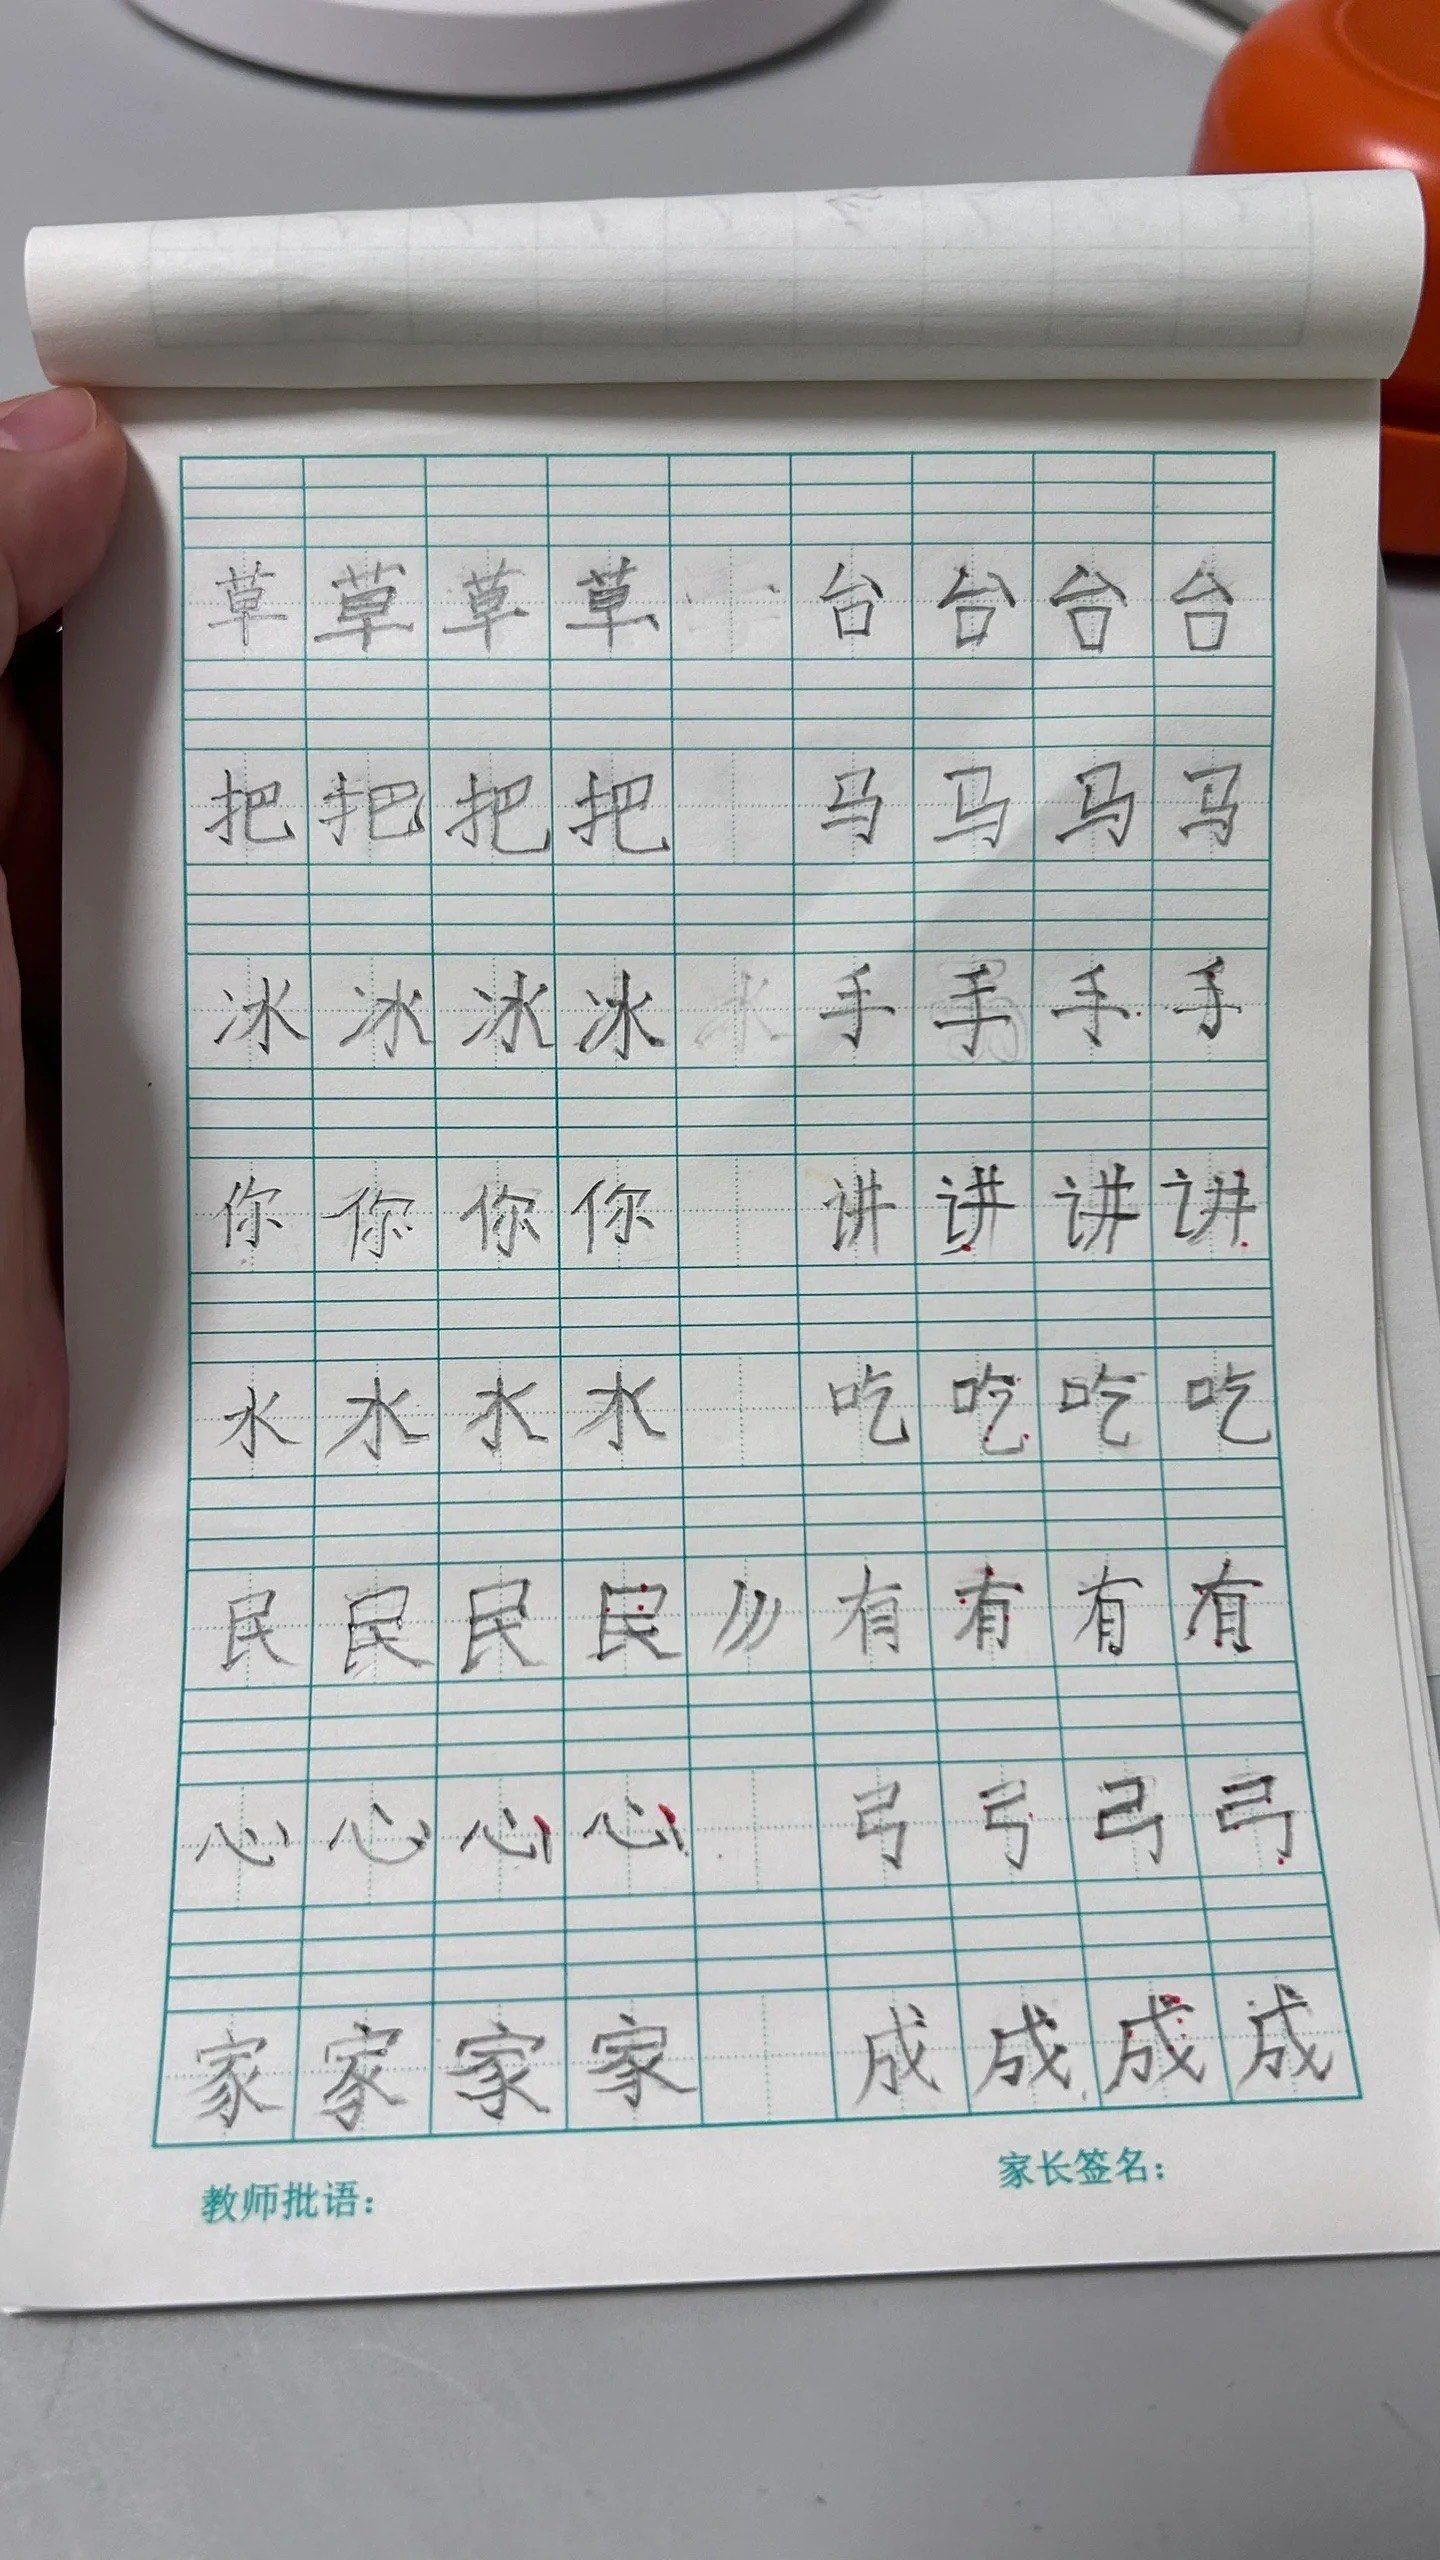 草草草草 台台台台
把把把把 马马马马
冰冰冰冰水手手手手
你你你你 讲讲讲讲
水水水水 吃吃吃吃
民民民民 有有有有
心心心心 弓弓弓弓
家家家家 成成成成
教师批语： 家长签名：